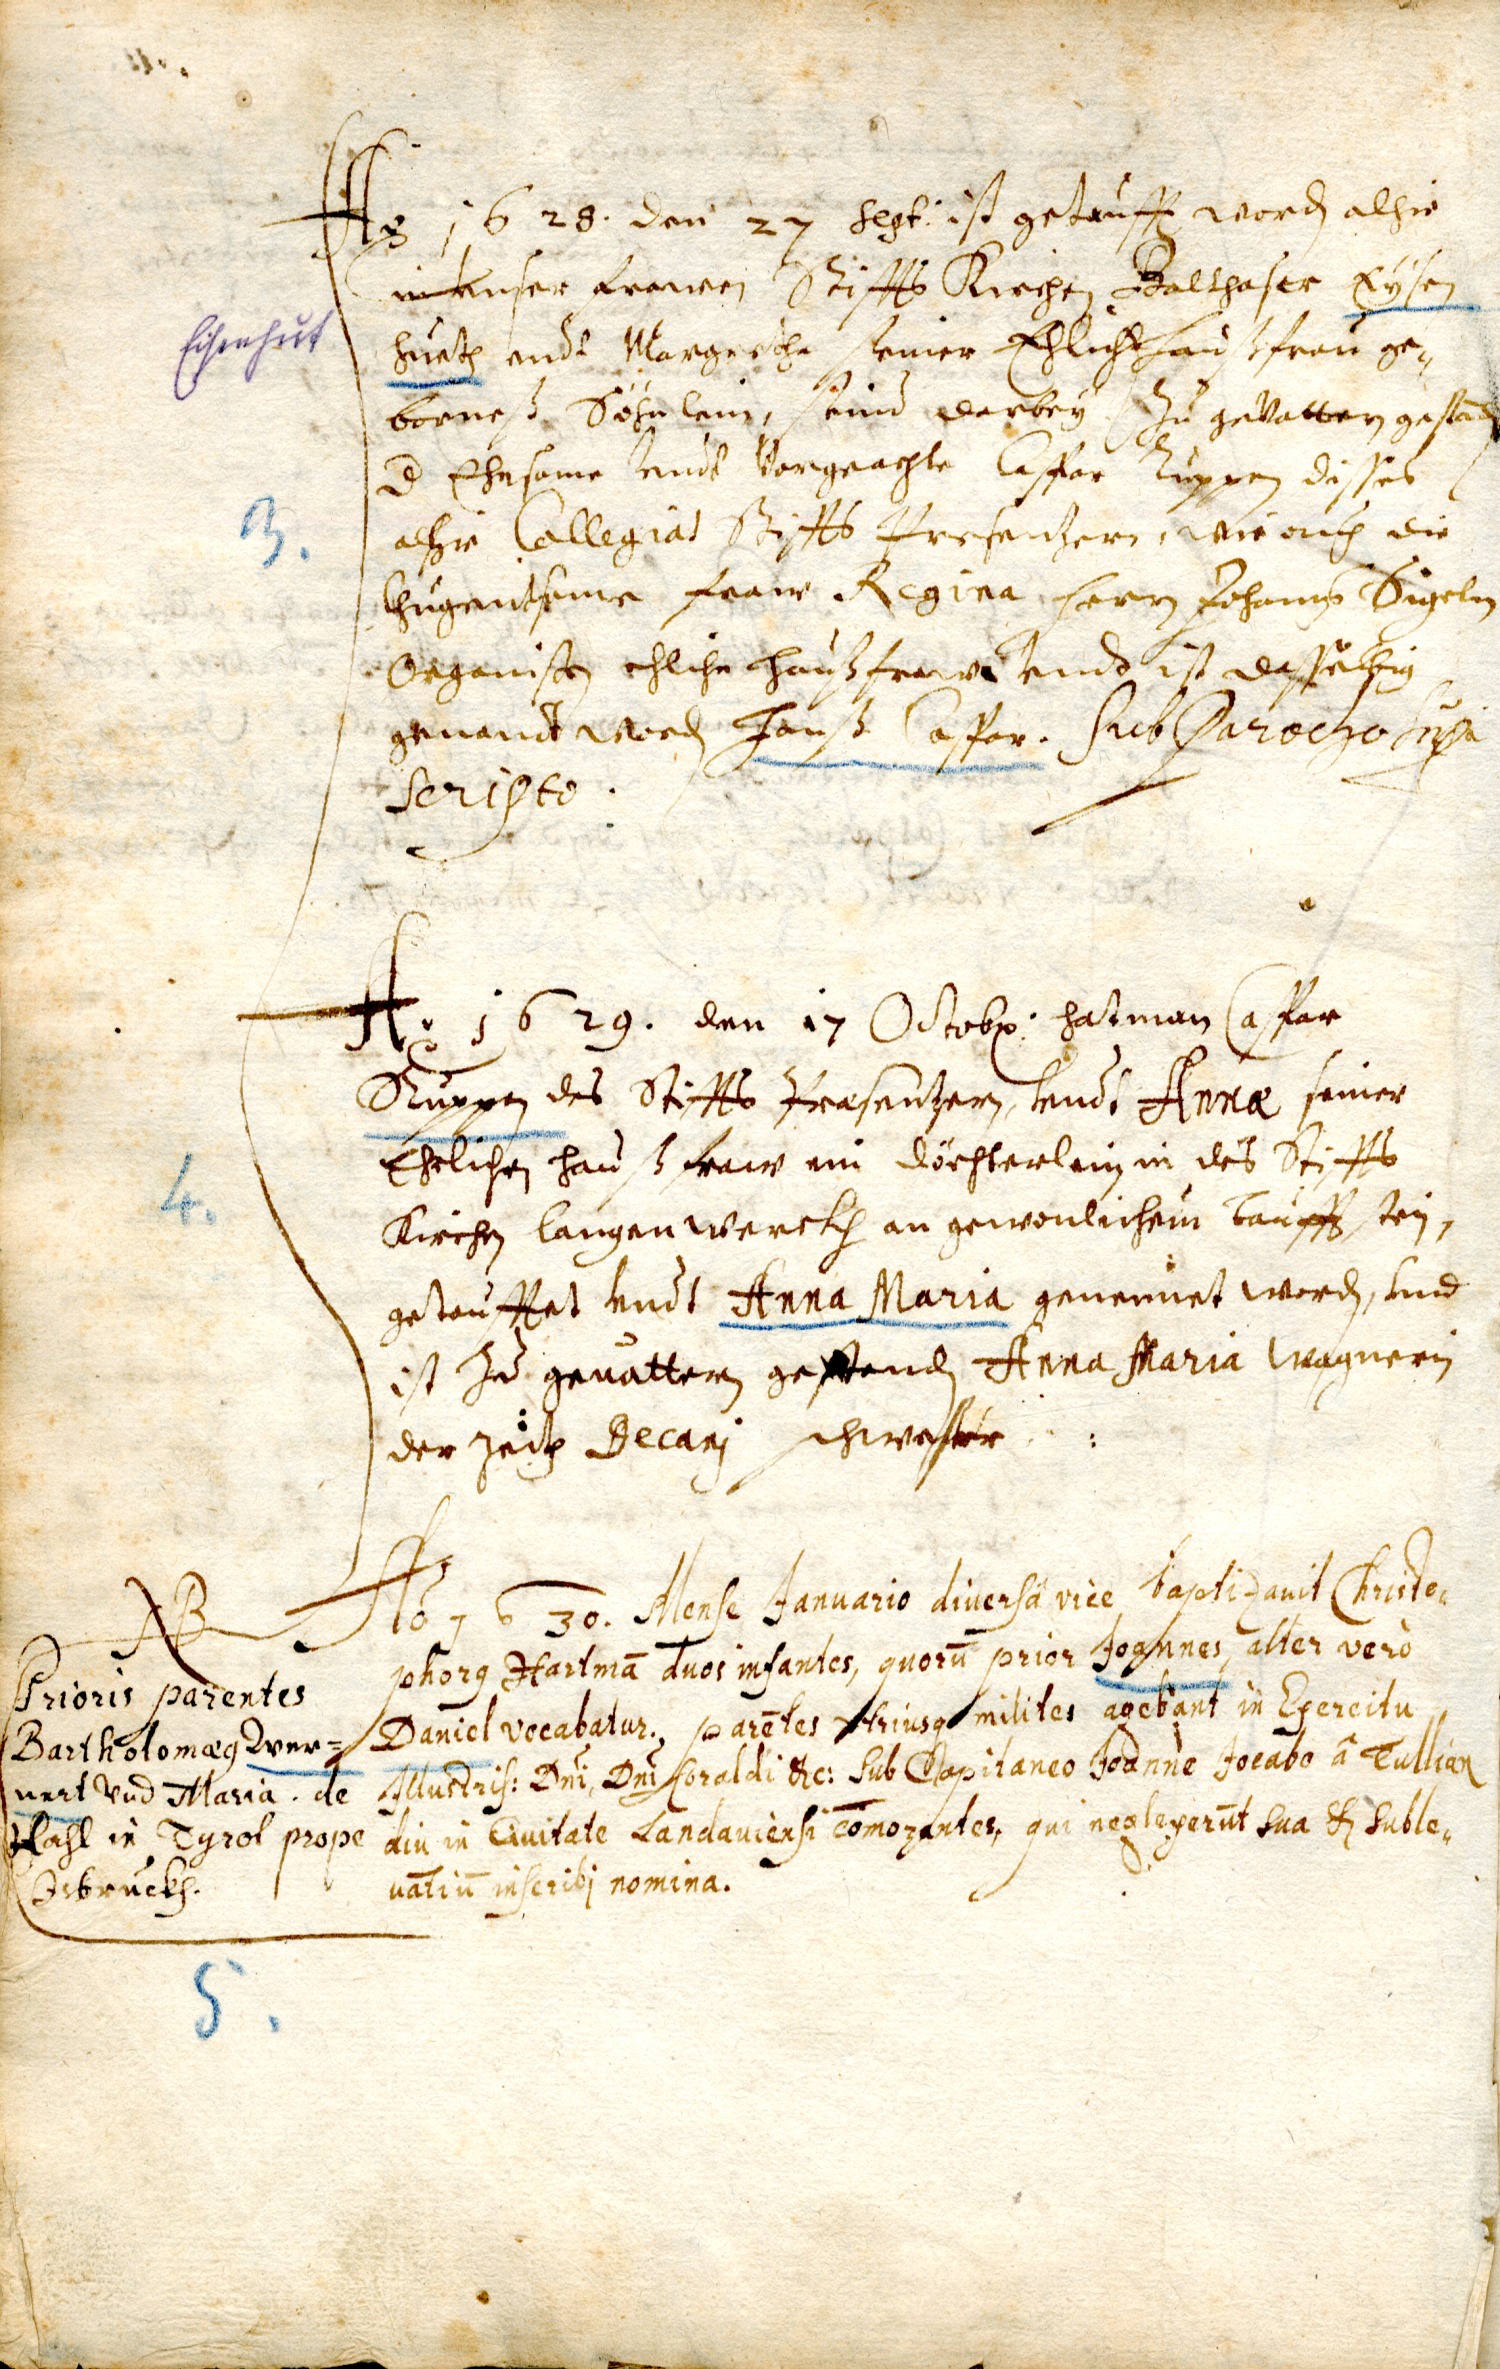 Ao 1628. den 27 Sept: ist getaufft word alhie
in unser frawen Stiffts Kirchen Balthaser Eysen
Eisenhut
hueth undt Margretha seiner Ehlich haußfrau ge-
bornes Söhnlein, seind darbey zu gevattern gestand
d Ehrsame undt Vorgeachte Casspar Kuppen disses
3.
alhie Collegiat Stiffts Presentzern, wie auch die
thugentsame fraw Regina herrn Johanns Sigeln
Organisten ehliche haußfraw undt ist dasselbig
genandt word Hanß Casspar. Sub Parocho supra
scripto.
Ao 1629. den 17 Octobr: hat man Casspar
Kuppen des Stiffts Præsentzern, undt Annæ seiner
Ehrlichen haußfraw ein döchterlein in des Stiffts
4.
Kirchen langenwerckh an gewonlichem tauffstein,
getauffet undt Anna Maria genennet word, und
ist Zu gevattern gestand Anna Maria Wagnerin
der Zeith Decani schwester :
NB
Ao 1630. Mense Januario diversa vice baptizavit Christo-
phorg Hartmā duos infantes, quorū prior Joannes, alter verò
Daniel vocabatur, parētes utriusq milites agebant in Exercitu
Illustriss: Dni, Dni Coraldi &c: sub Capitaneo Joanne Jocabo à Tullian
diu in Civitate Landaviensi cōmorantes, qui neglexerūt sua & suble-
vātiū inscribi nomina.
Prioris parentes
Bartholomæg Qver-
nert Und Maria. de
Hahl in Tyrol prope
Isbruckh.
5.